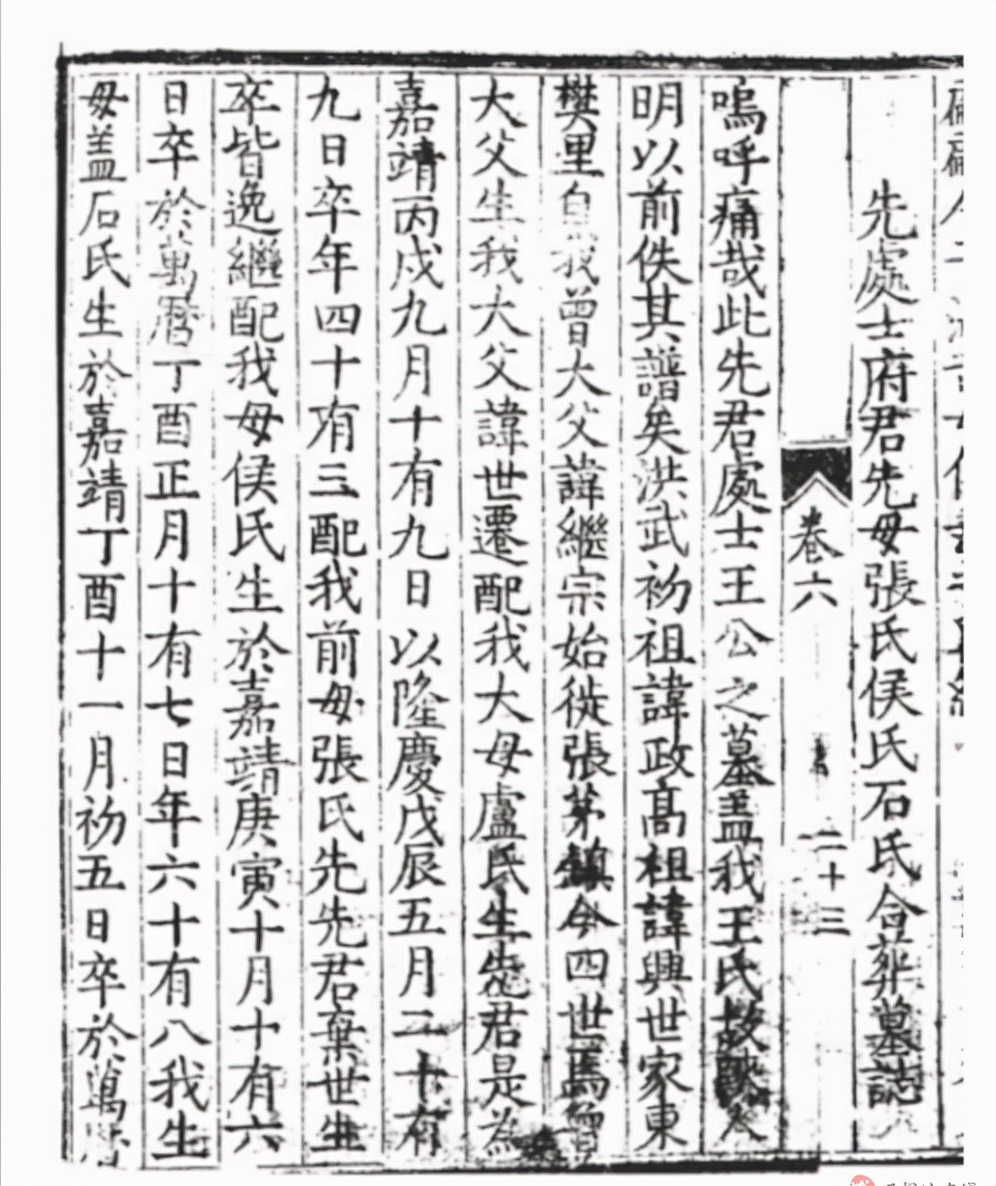 先處士府君先母張氏侯氏石氏合葬墓誌
卷六
二十三
嗚呼痛哉此先君處士王公之墓盖我王氏故
明以前佚其譜矣洪武初祖諱政髙祖諱興世家東
樊里自我曾大父諱繼宗始徙張茅鎮今四世焉曾
大父生我大父諱世遷配我大母盧氏生先君是為
嘉靖丙戌九月十有九日以隆慶戊辰五月二十有
九日卒年四十有三配我前母張氏先先君棄世生
卒皆逸繼配我母侯氏生於嘉靖庚寅十月十有六
日卒於萬曆丁酉正月十有七日年六十有八我生
母盖石氏生於嘉靖丁酉十一月初五日卒於萬